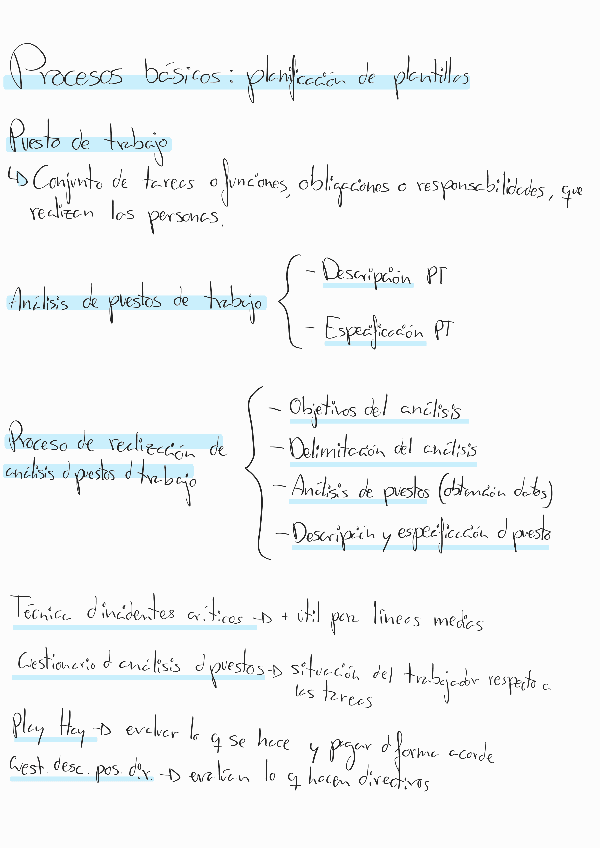 Procesos básicos: planificación de plantillas
Puesto de trabajo
↳ Conjunto de tareas o funciones, obligaciones o responsabilidades, que
realizan las personas.
Análisis de puestos de trabajo
- Descripción PT
- Especificación PT
Proceso de realización de
análisis d puestos d trabajo
- Objetivos del análisis
- Delimitación del análisis
- Análisis de puestos (obtención datos)
- Descripción y especificación d puesto
Técnica d'incidentes críticos → + útil para líneas medias
Cuestionario d análisis d puestos → situación del trabajador respecto a
las tareas
Play Hay → evaluar lo q se hace y pagar d forma acorde
Cuest. desc. pos. dir. → evalúan lo q hacen directivos